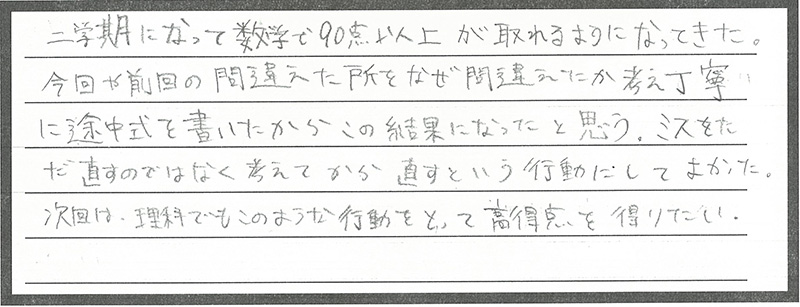 二学期になって数学で90点以上が取れるようになってきた。
今回や前回の間違えた所をなぜ間違えたか考え丁寧
に途中式を書いたからこの結果になったと思う。ミスをた
だ直すのではなく考えてから直すという行動にしてよかった。
次回は、理科でもこのような行動をとって高得点を得りたい。